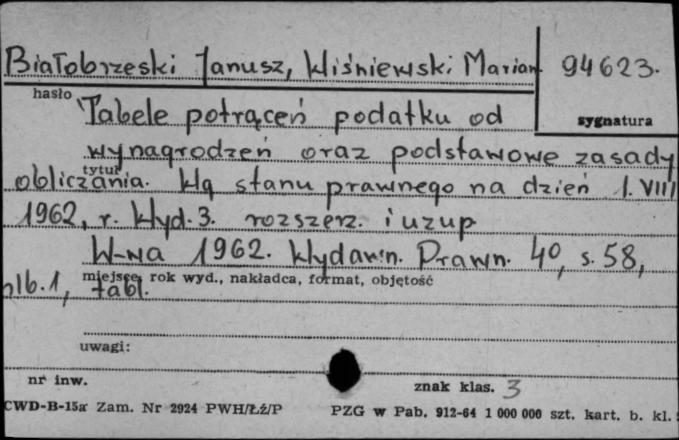 Białobrzeski Janusz, Wiśniewski Marian 94623.
hasło
sygnatura
Tabele potrąceń podatku od
wynagrodzeń oraz podstawowe zasady
tytuł
obliczania. Wg stanu prawnego na dzień 1.VIII
1962, r. Wyd. 3. rozszerz. i uzup
W-wa 1962. Wydawn. Prawn. 4°, s. 58,
miejsce, rok wyd., nakładca, format, objętość
nlb. 1, tabl.
uwagi:
nr inw.
znak klas. 3
CWD-B-15a Zam. Nr 2924 PWH/Łź/P PZG w Pab. 912-64 1 000 000 szt. kart. b. kl.